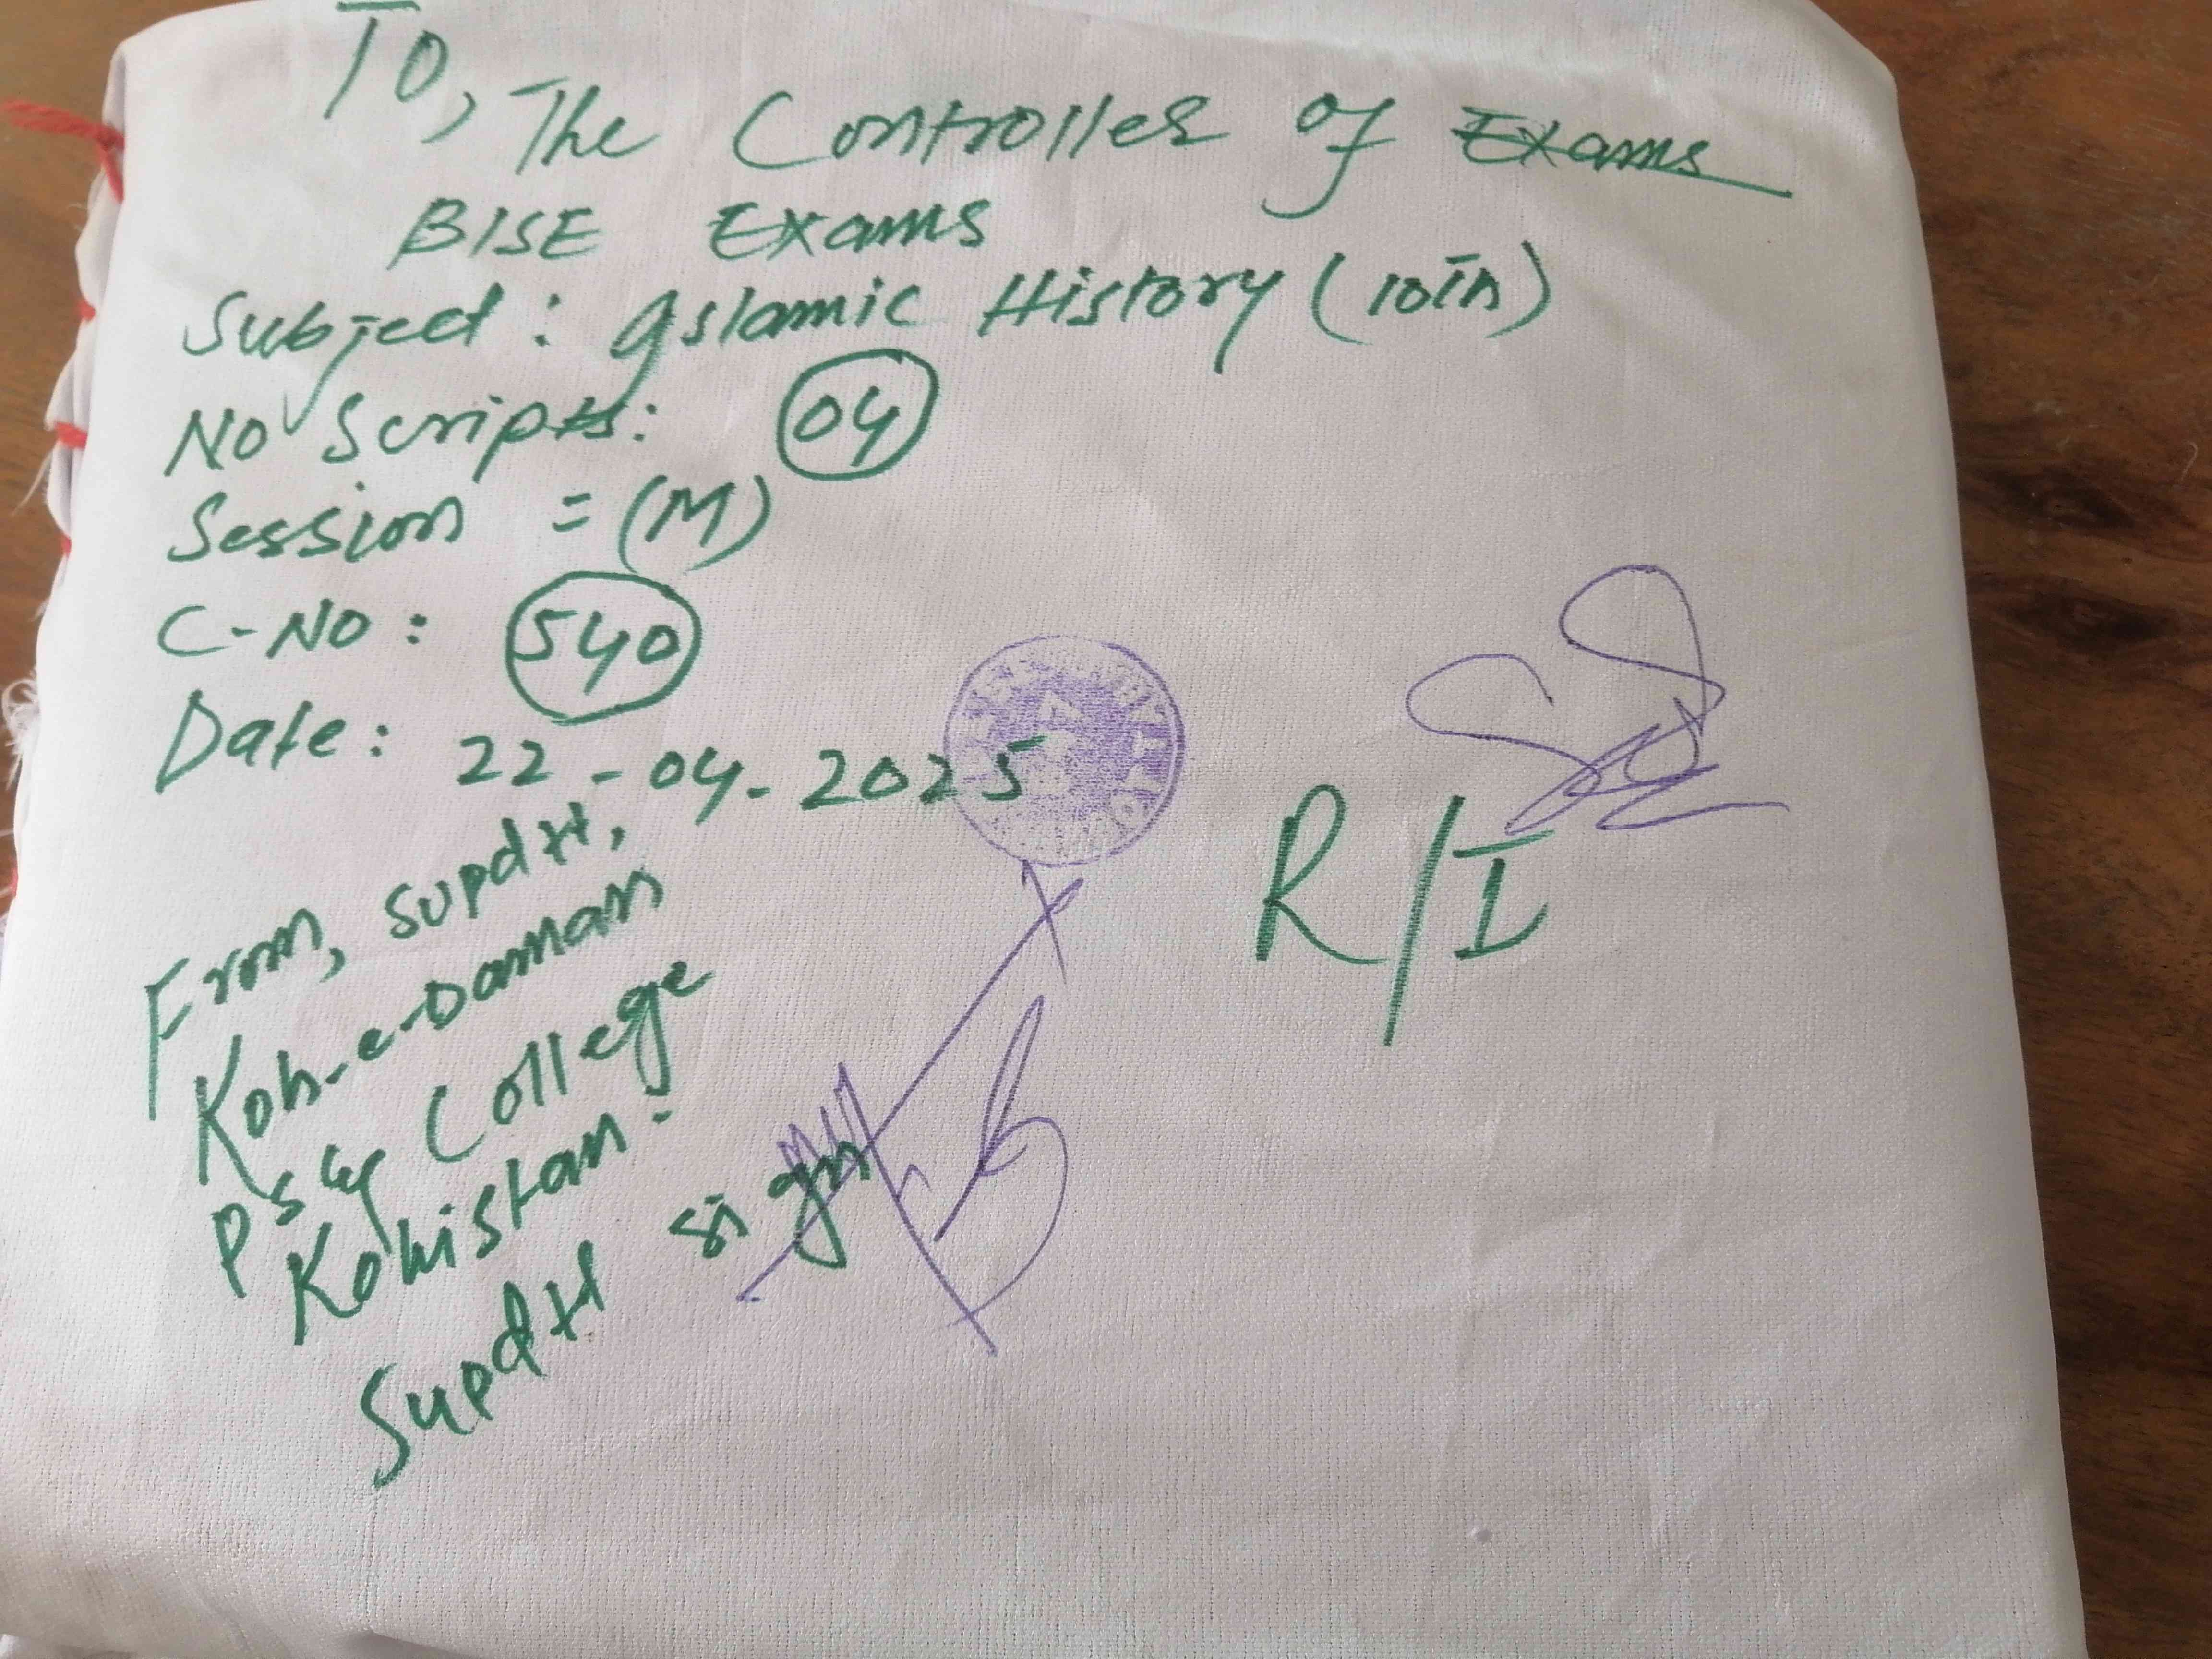 To, The Controller of Exams
BISE Exams
Subject: Islamic History (10th)
No Scripts: 04
Session = (M)
C-No: 540
Date: 22-04-2025
From, Supdtt,
Koh-e-Daman
PS & College
Kohistan.
Supdtt sign
R/I